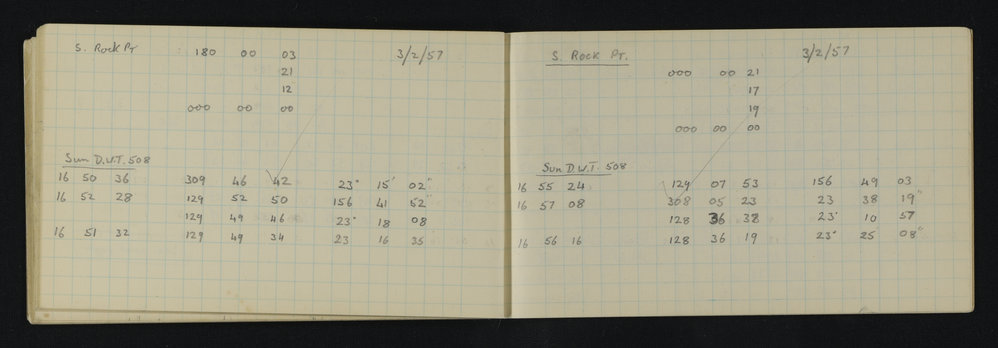 S. Rock Pt 180 00 03 3/2/57
21
12
000 00 00
Sun D.W.T. 508
16 50 36 309 46 42 23° 15' 02"
16 52 28 129 52 50 156 41 52"
129 49 46 23° 18 08
16 51 32 129 49 34 23 16 35
S. ROCK PT. 3/2/57
000 00 21
17
19
000 00 00
Sun D.W.T. 508
16 55 24 129 07 53 156 49 03
16 57 08 308 05 23 23 38 19"
128 36 38 23° 10 57
16 56 16 128 36 19 23° 25 08"